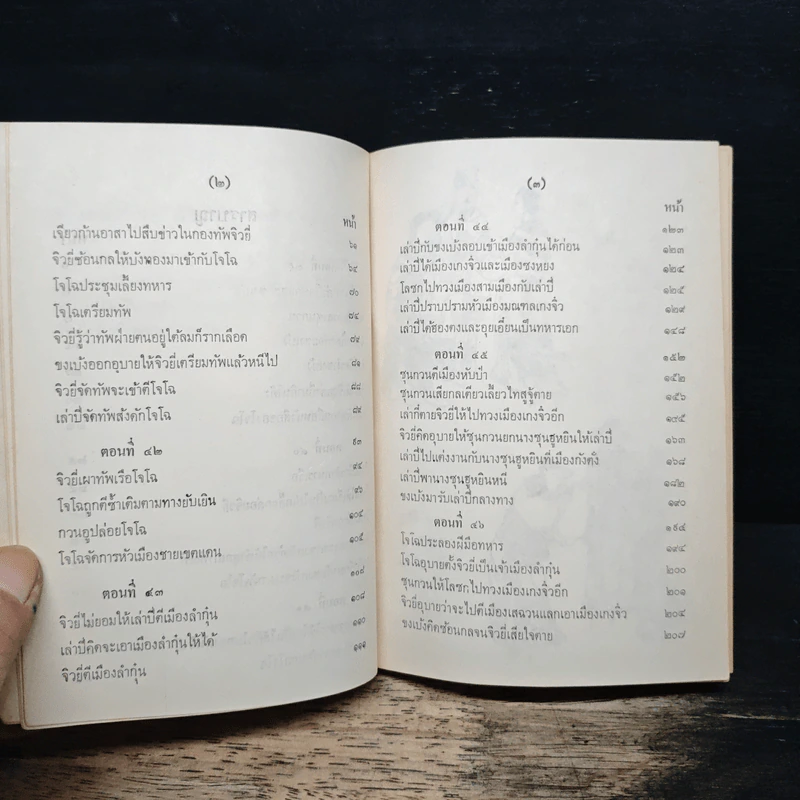 (๒)
หน้า
เจียวก้านอาสาไปสืบข่าวในกองทัพจิวยี่ ๖๑
จิวยี่ซ้อนกลให้บังทองมาเข้ากับโจโฉ ๖๔
โจโฉประชุมเลี้ยงทหาร ๗๐
โจโฉเตรียมทัพ ๗๔
จิวยี่รู้ว่าทัพฝ่ายตนอยู่ใต้ลมก็รากเลือด ๗๙
ขงเบ้งออกอุบายให้จิวยี่เตรียมทัพแล้วหนีไป ๘๑
จิวยี่จัดทัพจะเข้าตีโจโฉ ๘๘
เล่าปี่จัดทัพสังดักโจโฉ ๘๙
ตอนที่ ๔๒ ๙๓
จิวยี่เผาทัพเรือโจโฉ ๙๕
โจโฉถูกตีซ้ำเติมตามทางยับเยิน ๙๖
กวนอูปล่อยโจโฉ ๑๐๔
โจโฉจัดการหัวเมืองชายเขตแดน ๑๐๕
ตอนที่ ๔๓ ๑๐๘
จิวยี่ไม่ยอมให้เล่าปี่ตีเมืองลำกุ๋น ๑๐๘
เล่าปี่คิดจะเอาเมืองลำกุ๋นให้ได้ ๑๑๐
จิวยี่ตีเมืองลำกุ๋น ๑๑๑
(๓)
หน้า
ตอนที่ ๔๔ ๑๒๓
เล่าปี่กับขงเบ้งลอบเข้าเมืองลำกุ๋นได้ก่อน ๑๒๓
เล่าปี่ได้เมืองเกงจิ๋วและเมืองซงหยง ๑๒๔
โลซกไปทวงเมืองสามเมืองกับเล่าปี่ ๑๒๕
เล่าปี่ปราบปรามหัวเมืองมณฑลเกงจิ๋ว ๑๒๙
เล่าปี่ได้ฮองตงและอุยเอี๋ยนเป็นทหารเอก ๑๔๘
ตอนที่ ๔๕ ๑๕๒
ซุนกวนตีเมืองหับป๋า ๑๕๒
ซุนกวนเสียกลเตียวเลี้ยวไทสูจู้ตาย ๑๕๖
เล่ากี๋ตายจิวยี่ให้ไปทวงเมืองเกงจิ๋วอีก ๑๙๕
จิวยี่คิดอุบายให้ซุนกวนยกนางซุนฮูหยินให้เล่าปี่ ๑๖๓
เล่าปี่ไปแต่งงานกับนางซุนฮูหยินที่เมืองกังตั๋ง ๑๖๘
เล่าปี่พานางซุนฮูหยินหนี ๑๘๒
ขงเบ้งมารับเล่าปี่กลางทาง ๑๙๐
ตอนที่ ๔๖ ๑๙๔
โจโฉประลองฝีมือทหาร ๑๙๔
โจโฉอุบายตั้งจิวยี่เป็นเจ้าเมืองลำกุ๋น ๒๐๐
ซุนกวนให้โลซกไปทวงเมืองเกงจิ๋วอีก ๒๐๑
จิวยี่อุบายว่าจะไปตีเมืองเสฉวนแลกเอาเมืองเกงจิ๋ว ๒๐๔
ขงเบ้งคิดซ้อนกลจนจิวยี่เสียใจตาย ๒๐๗